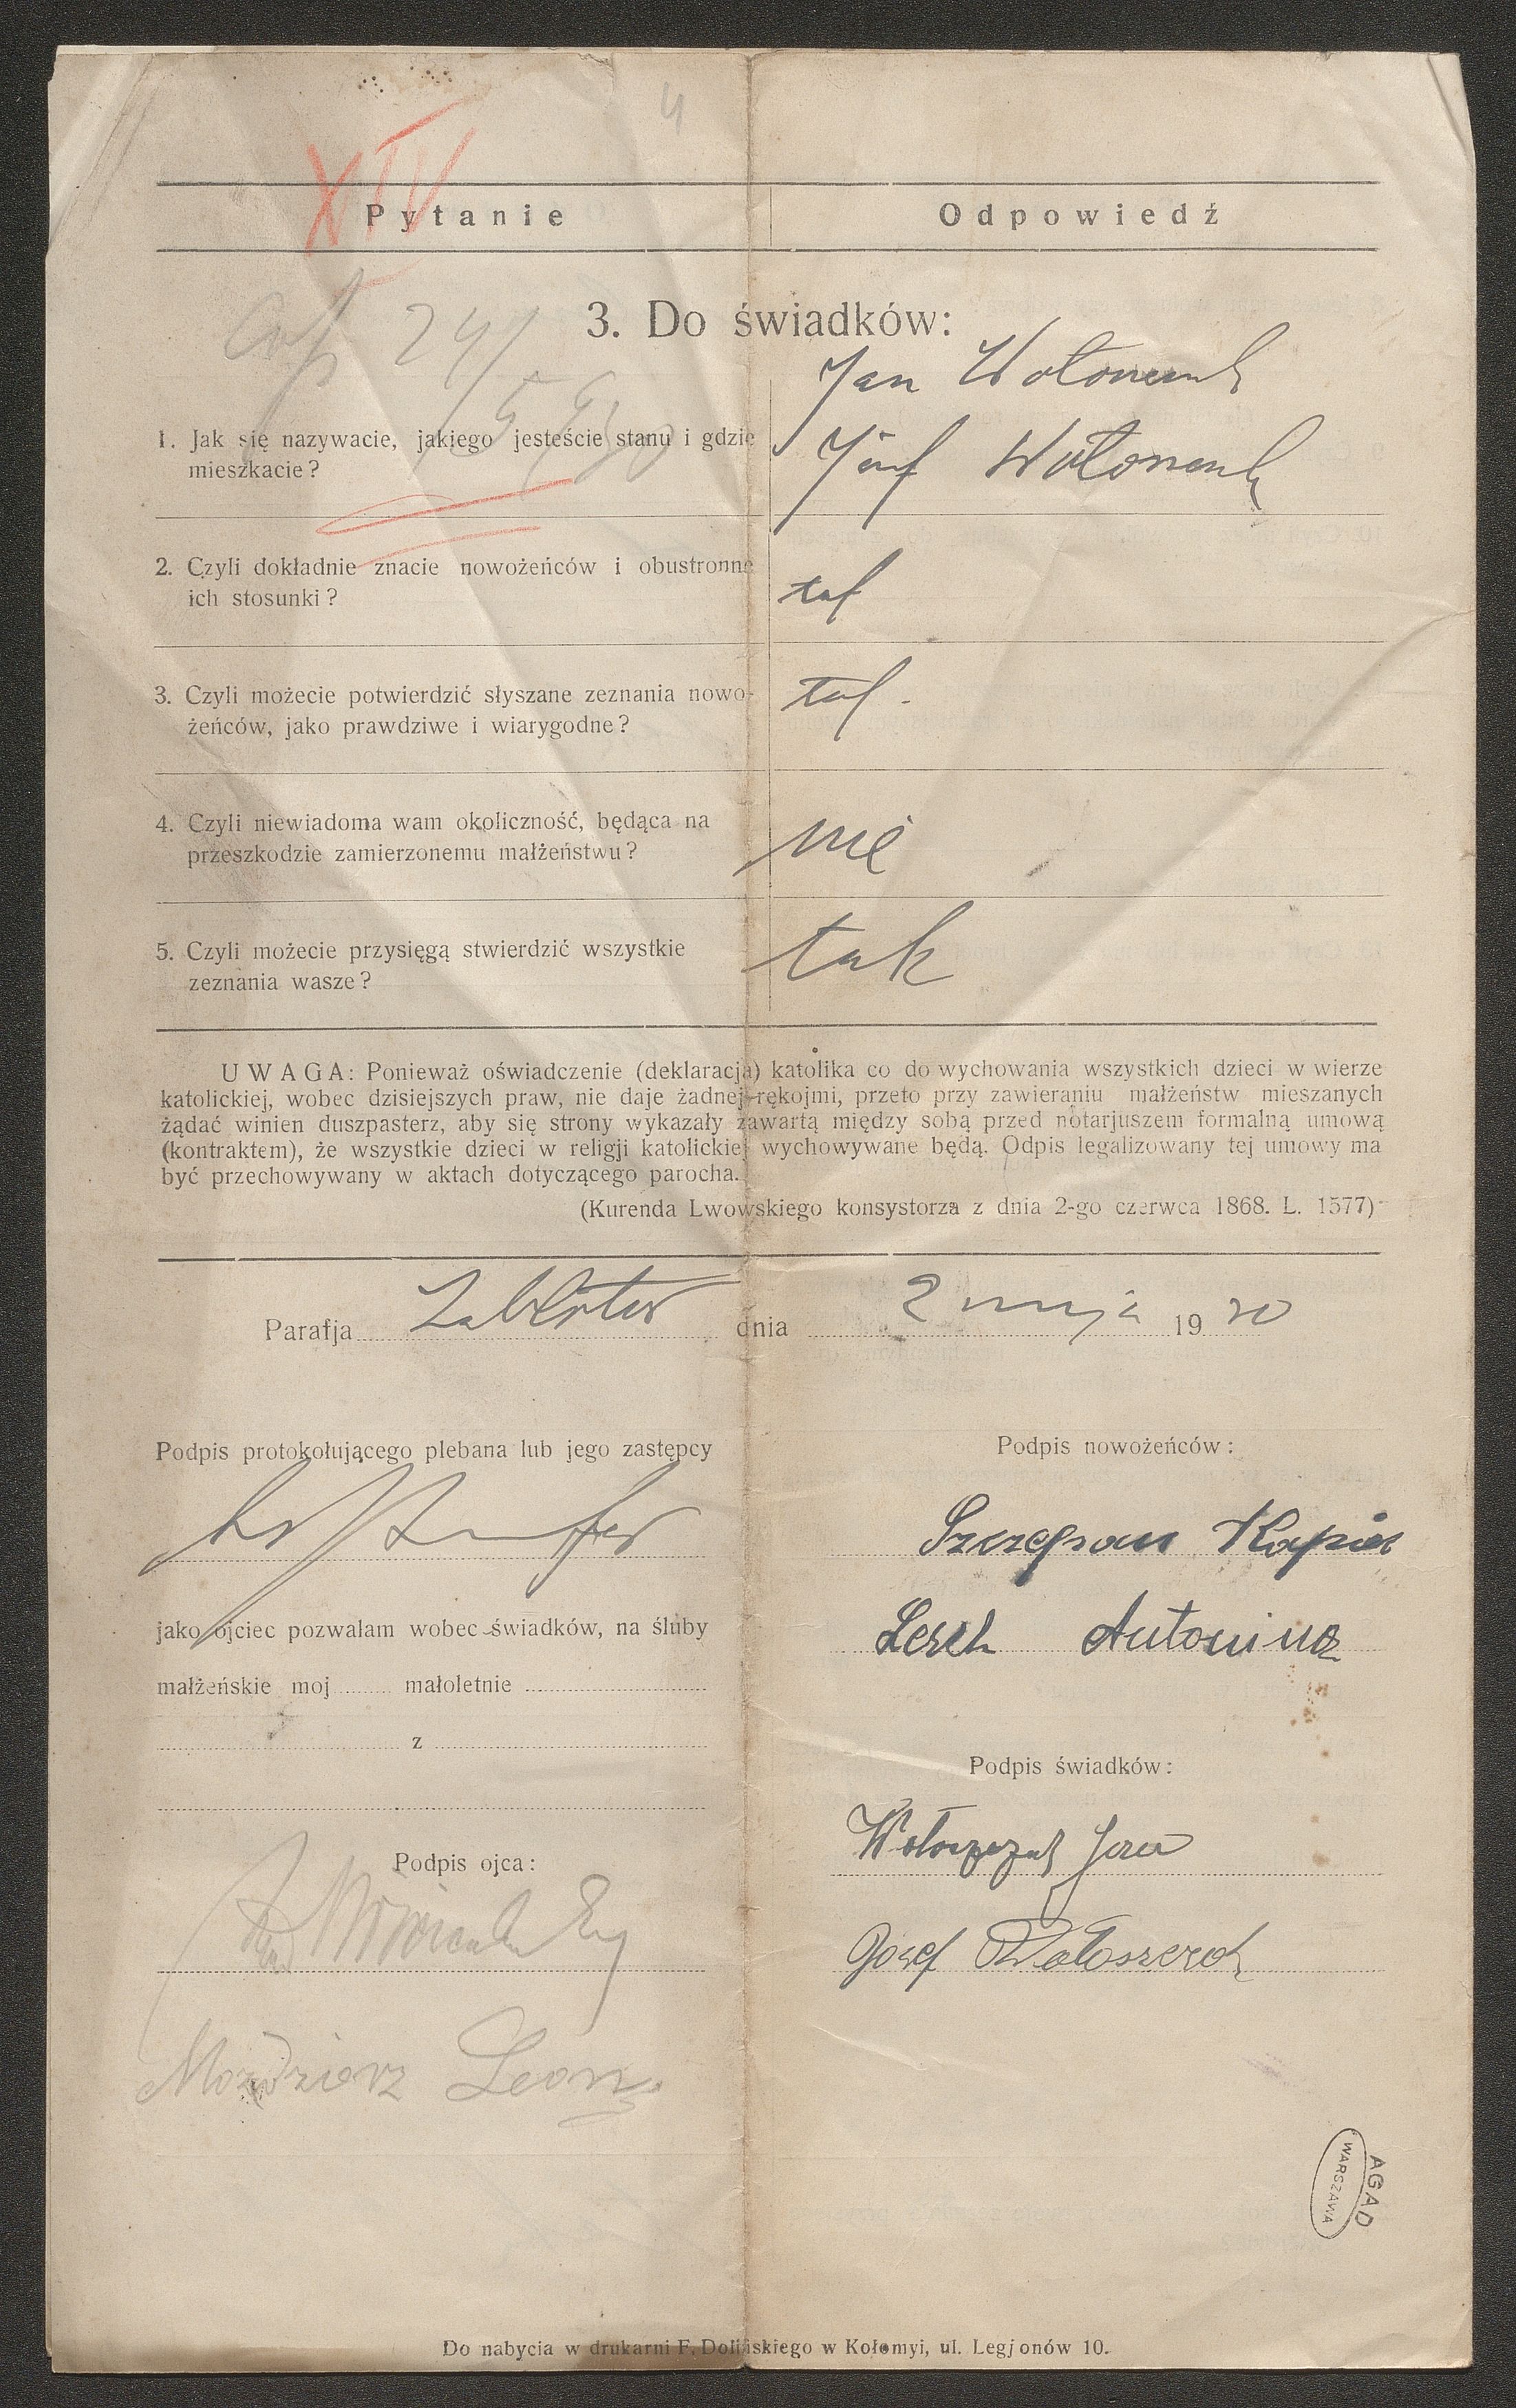 4
XIV
Pytanie Odpowiedź
24/
3. Do świadków:
Jan
1. Jak się nazywacie, jakiego jesteście stanu i gdzie
mieszkacie?
Józef
2. Czyli dokładnie znacie nowożeńców i obustronne
ich stosunki?
tak
3. Czyli możecie potwierdzić słyszane zeznania nowo-
żeńców, jako prawdziwe i wiarygodne?
tak.
4. Czyli niewiadoma wam okoliczność, będąca na
przeszkodzie zamierzonemu małżeństwu?
nie
5. Czyli możecie przysięgą stwierdzić wszystkie
zeznania wasze?
tak
UWAGA: Ponieważ oświadczenie (deklaracja) katolika co do wychowania wszystkich dzieci w wierze
katolickiej, wobec dzisiejszych praw, nie daje żadnej rękojmi, przeto przy zawieraniu małżeństw mieszanych
żądać winien duszpasterz, aby się strony wykazały zawartą między sobą przed notarjuszem formalną umową
(kontraktem), że wszystkie dzieci w religji katolickiej wychowywane będą. Odpis legalizowany tej umowy ma
być przechowywany w aktach dotyczącego parocha.
(Kurenda Lwowskiego konsystorza z dnia 2-go czerwca 1868. L. 1577)
Parafja Zabłotów dnia 2 maja 1930
Podpis protokołującego plebana lub jego zastępcy
Podpis nowożeńców:
Szczepan Kapier
jako ojciec pozwalam wobec świadków, na śluby
Lesch Antonina
małżeńskie moj małoletnie
z
Podpis świadków:
Wołoszczuk Jan
Podpis ojca:
Józef Wołoszczuk
Moździerz Leon
AGAD
WARSZAWA
Do nabycia w drukarni F. Dolińskiego w Kołomyi, ul. Legjonów 10.